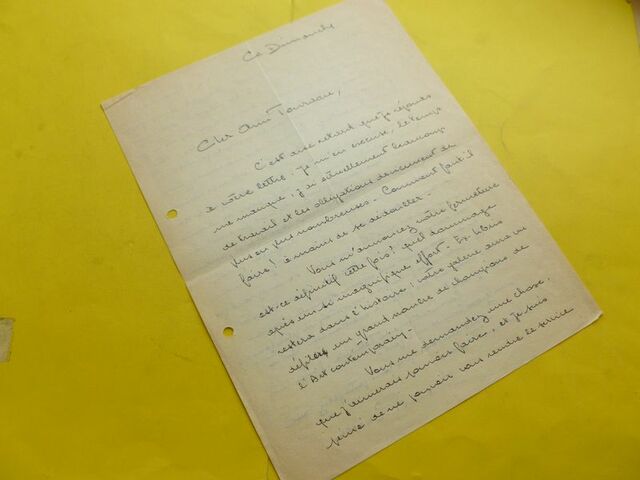 Ce Dimanche
Cher Ami Toureau,
C'est avec retard que je réponds
à votre lettre. Je m'en excuse, le temps
me manque, j'ai actuellement beaucoup
de travail et les obligations deviennent de
plus en plus nombreuses. Comment faut-il
faire! à moins de se dédoubler.
Vous m'annoncez votre fermeture
est-ce définitif cette fois? quel dommage
après un si magnifique effort. Ex-Libris
restera dans l'histoire; votre galerie aura vu
défiler un grand nombre de champions de
l'Art contemporain.
Vous me demandez une chose,
que j'aimerais pouvoir faire, et je suis
peiné de ne pouvoir vous rendre le service